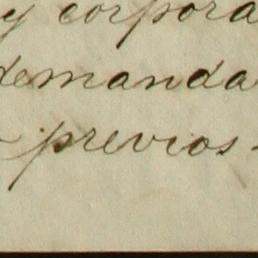 y corpora
demanda
previos